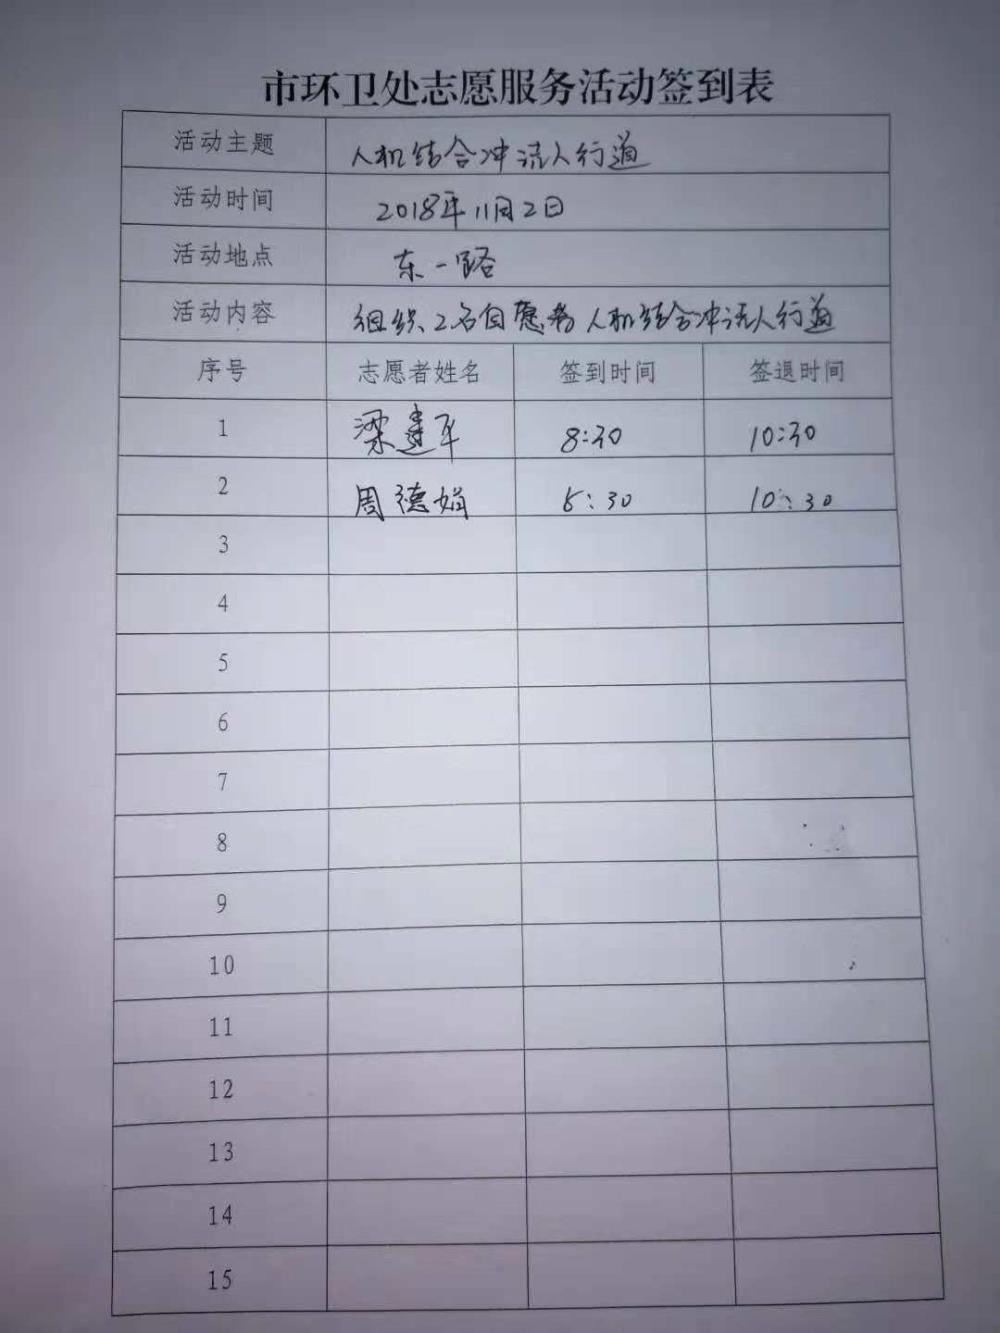 市环卫处志愿服务活动签到表
活动主题 人机结合冲洗人行道
活动时间 2018年11月2日
活动地点 东一路
活动内容 组织2名自愿者人机结合冲洗人行道
序号 志愿者姓名 签到时间 签退时间
1 梁建平 8:30 10:30
2 周德娟 8:30 10:30
3
4
5
6
7
8
9
10
11
12
13
14
15